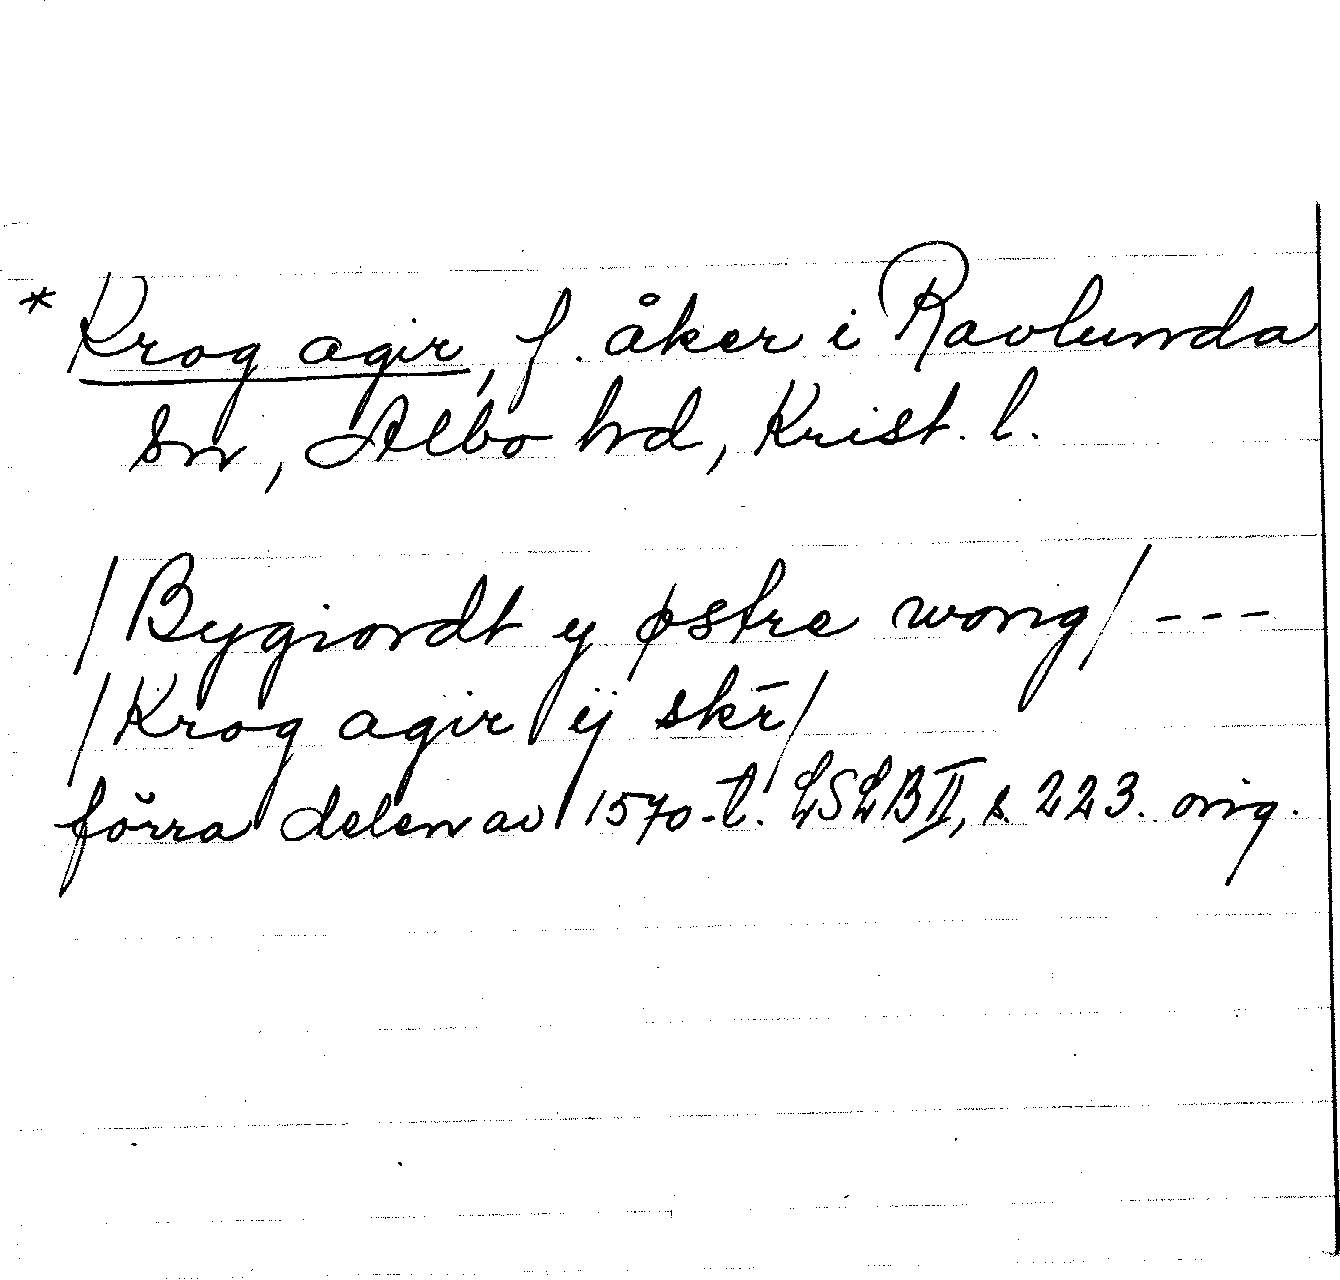 * Krog agir, f. åker i Ravlunda
sn, Albo hd, Krist. l.
/Bygiordt y østre wong/ ---
/Krog agir ij skr̄/
förra delen av 1570-t. LSLB II, s. 223. orig.